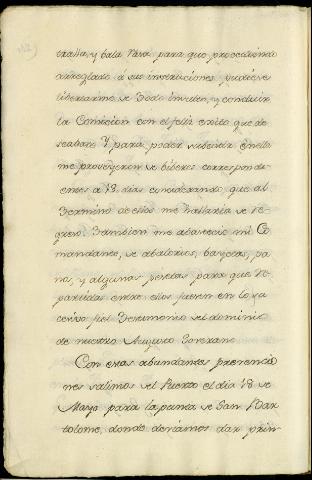 tralla, y bala Rasa para que procediendo
arreglado á sus instruciones pudiese
libertarme de todo insulto, y concluir
la Comicion con el feliz exito que de
seaba. Y para poder subsistir en ella
me proveyeron de biberes correspondi
entes a 18 dias considerando, que al
termino de ellos me hallaria de re
greso. Tambien me abastecio mi Co
mandante, de abalorios, bayetas, pa
nos, y algunas pesetas para que re
partidas entre ellos fuesen en lo, su
cesivo fiel Testimonio del dominio
de nuestro Augusto Soverano.
Con esas abundantes prevencio
nes salimos del Puerto el dia 18 de
Mayo para la punta de San Bar
tolome, donde deviamos dar prin-